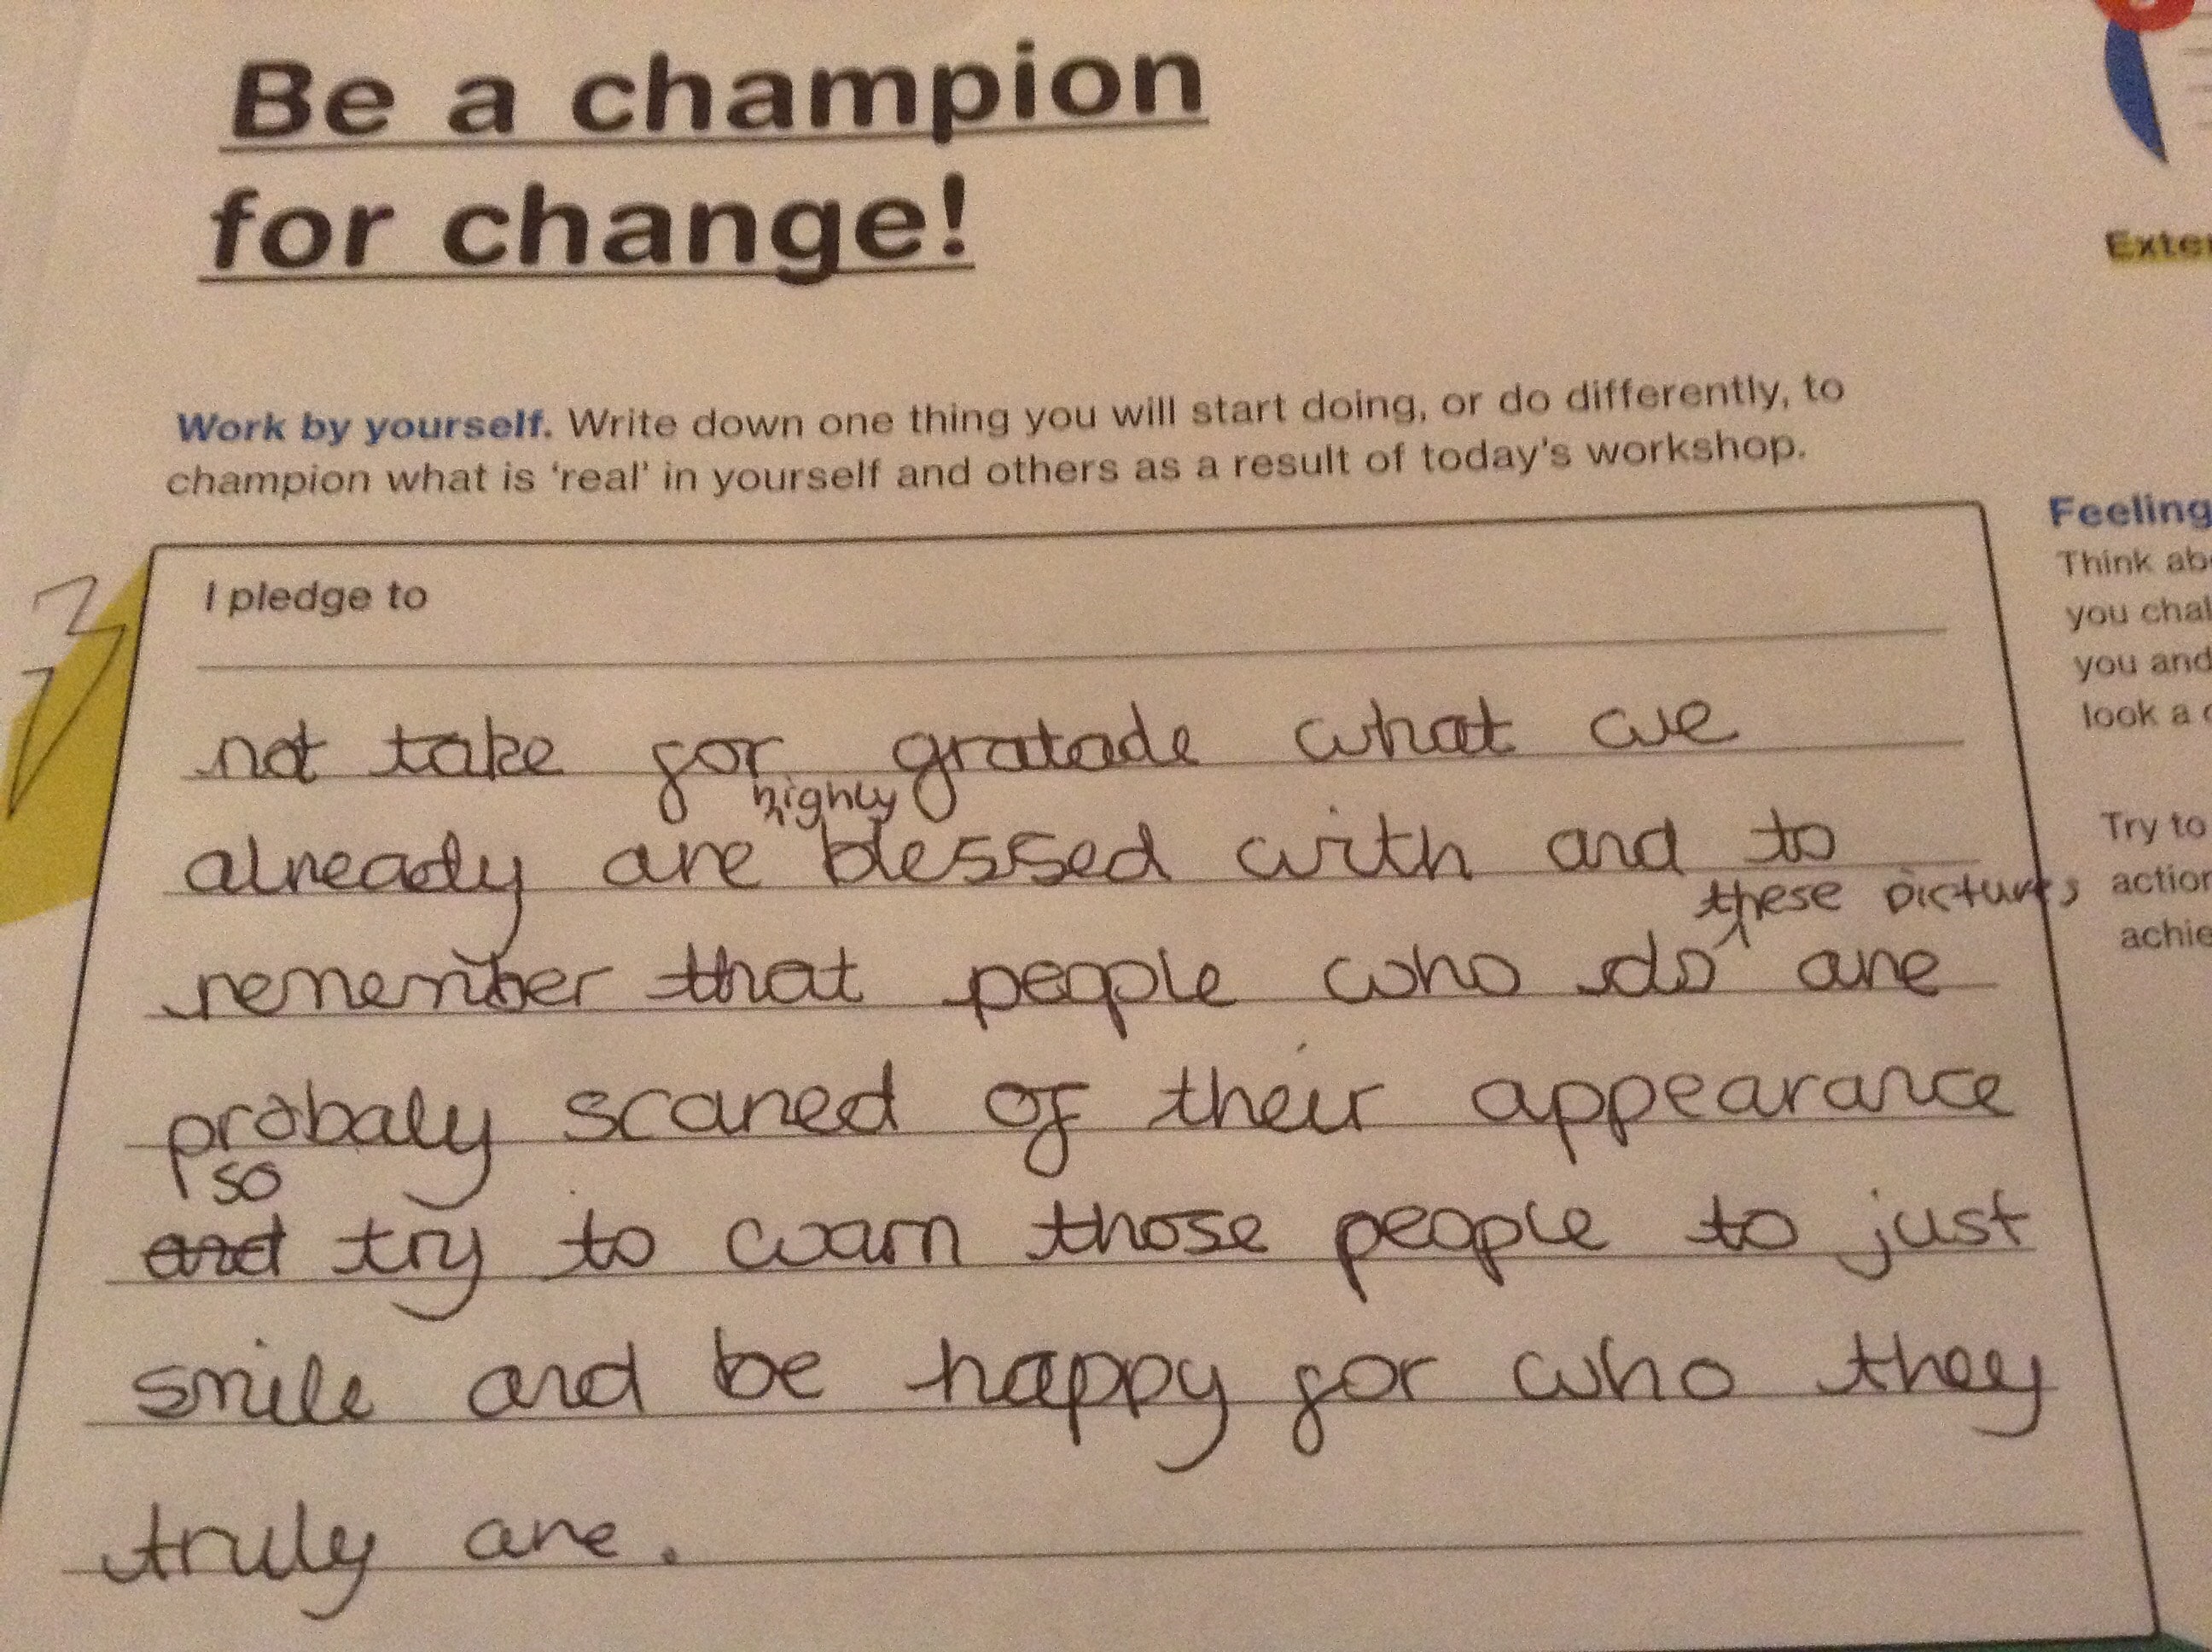 Be a champion
for change!
Exter
Work by yourself. Write down one thing you will start doing, or do differently, to
champion what is 'real' in yourself and others as a result of today's workshop.
I pledge to
not take for gratade what we
highly
already are blessed with and to
these pictures
remember that people who do are
probaly scared of their appearance
so
and try to warn those people to just
smile and be happy for who they
truly are.
Feeling
Think abo
you chal
you and
look a
Try to
action
achie